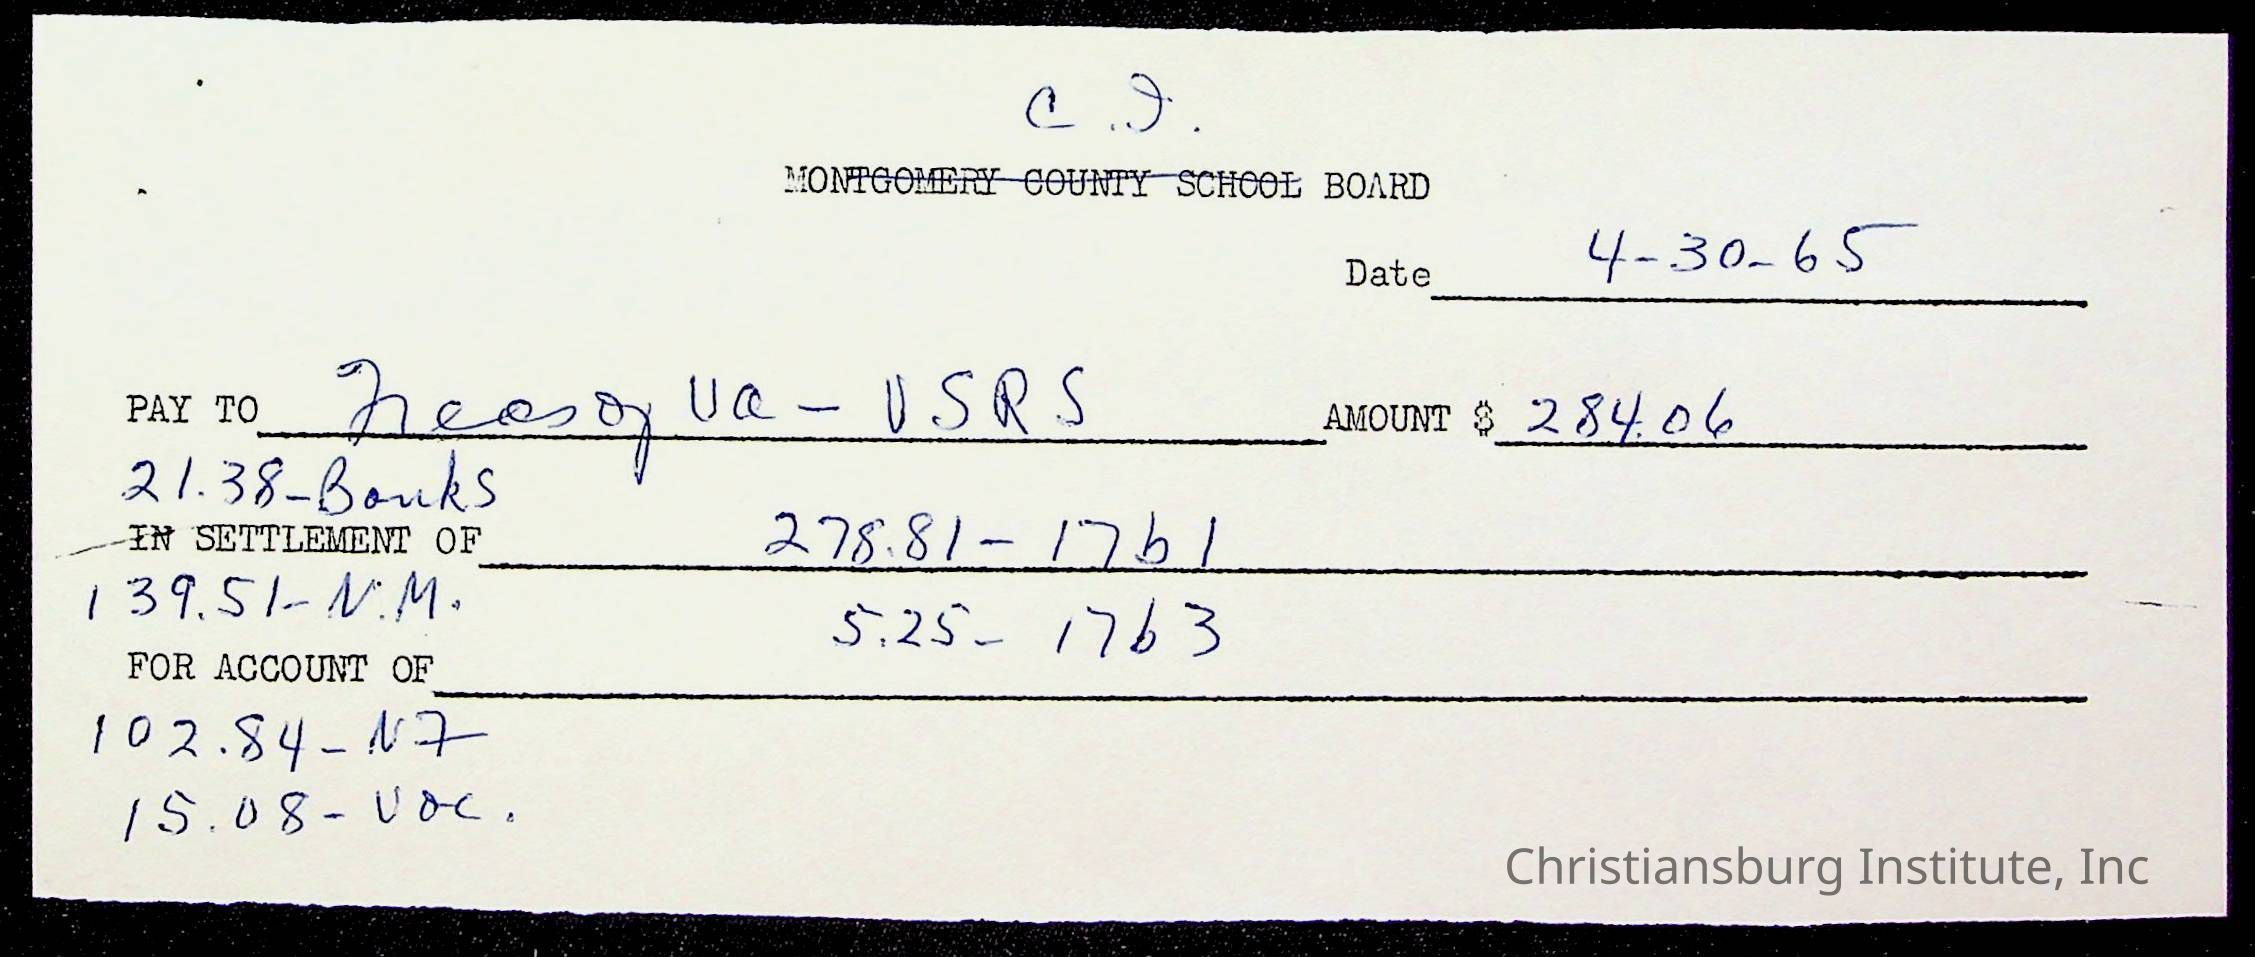 C.I.
MONTGOMERY COUNTY SCHOOL BOARD
Date 4-30-65
PAY TO Treas of Va - VSRS AMOUNT $ 284.06
21.38-Banks
IN SETTLEMENT OF 278.81-17b1
139.51-N.M.
5.25-17b3
FOR ACCOUNT OF
102.84-NF
15.08-Voc.
Christiansburg Institute, Inc